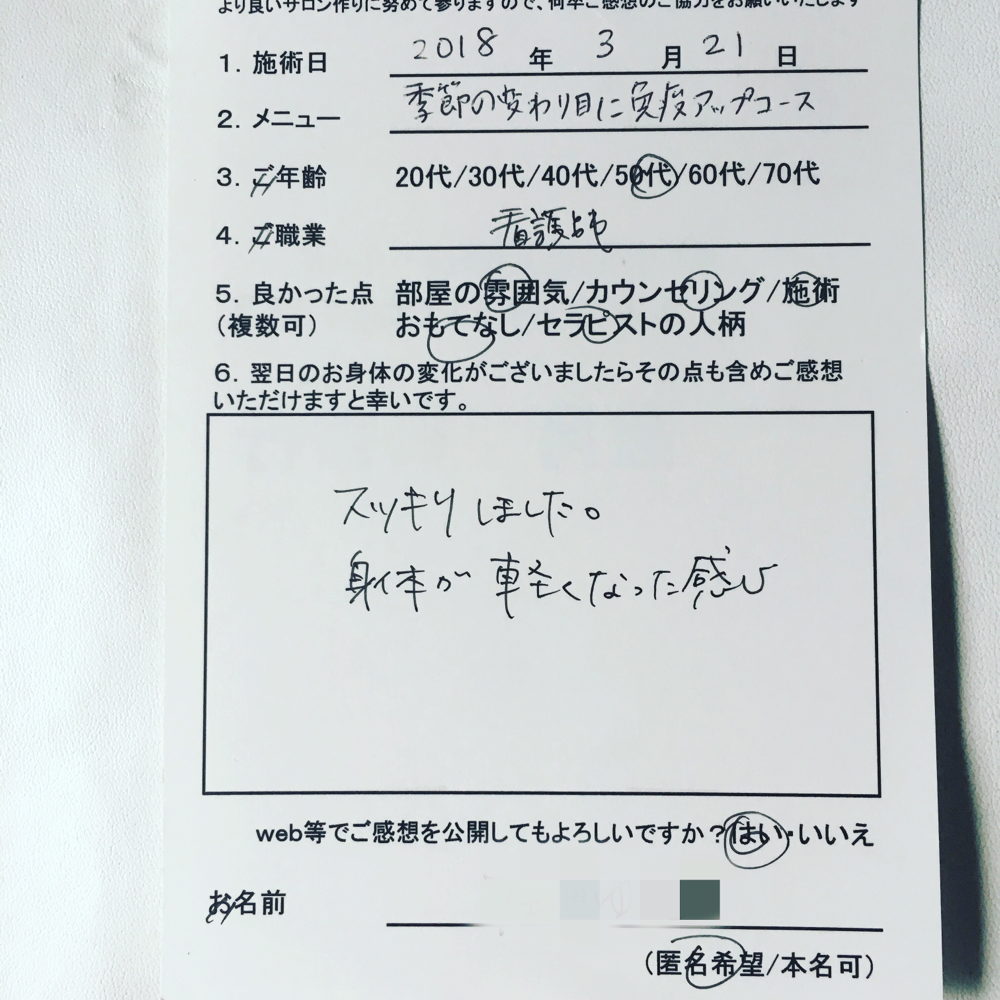 より良いサロン作りに努めて参りますので、何卒ご感想のご協力をお願いいたします
1. 施術日 2018 年 3 月 21 日
2. メニュー 季節の変わり目に免疫アップコース
3. ご年齢 20代/30代/40代/50代/60代/70代
4. ご職業 看護師
5. 良かった点 部屋の雰囲気/カウンセリング/施術
（複数可） おもてなし/セラピストの人柄
6. 翌日のお身体の変化がございましたらその点も含めご感想
いただけますと幸いです。
スッキリしました。
身体が軽くなった感じ
web等でご感想を公開してもよろしいですか？はい・いいえ
お名前
（匿名希望/本名可）